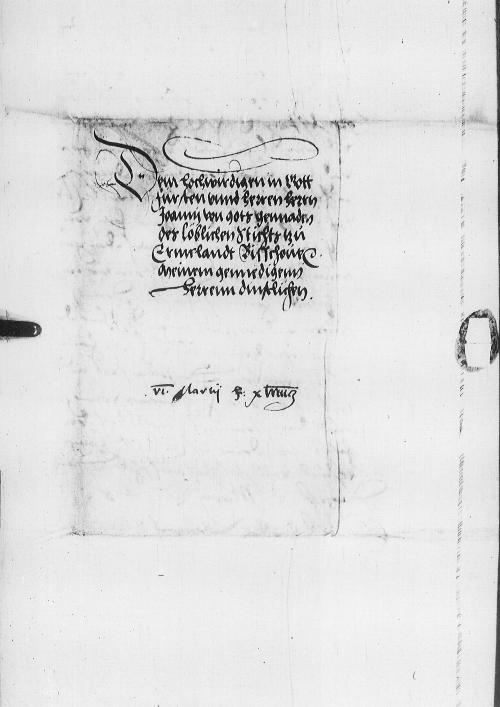 Dem hochwirdigen in Gott
fürsten vnnd herren herrn
Joannj von gots gennaden
des löblichen Stiffts zů
Ermelandt Bisschoue
Meinem genedigenn
herrenn dinstlichen.
vi. Martij